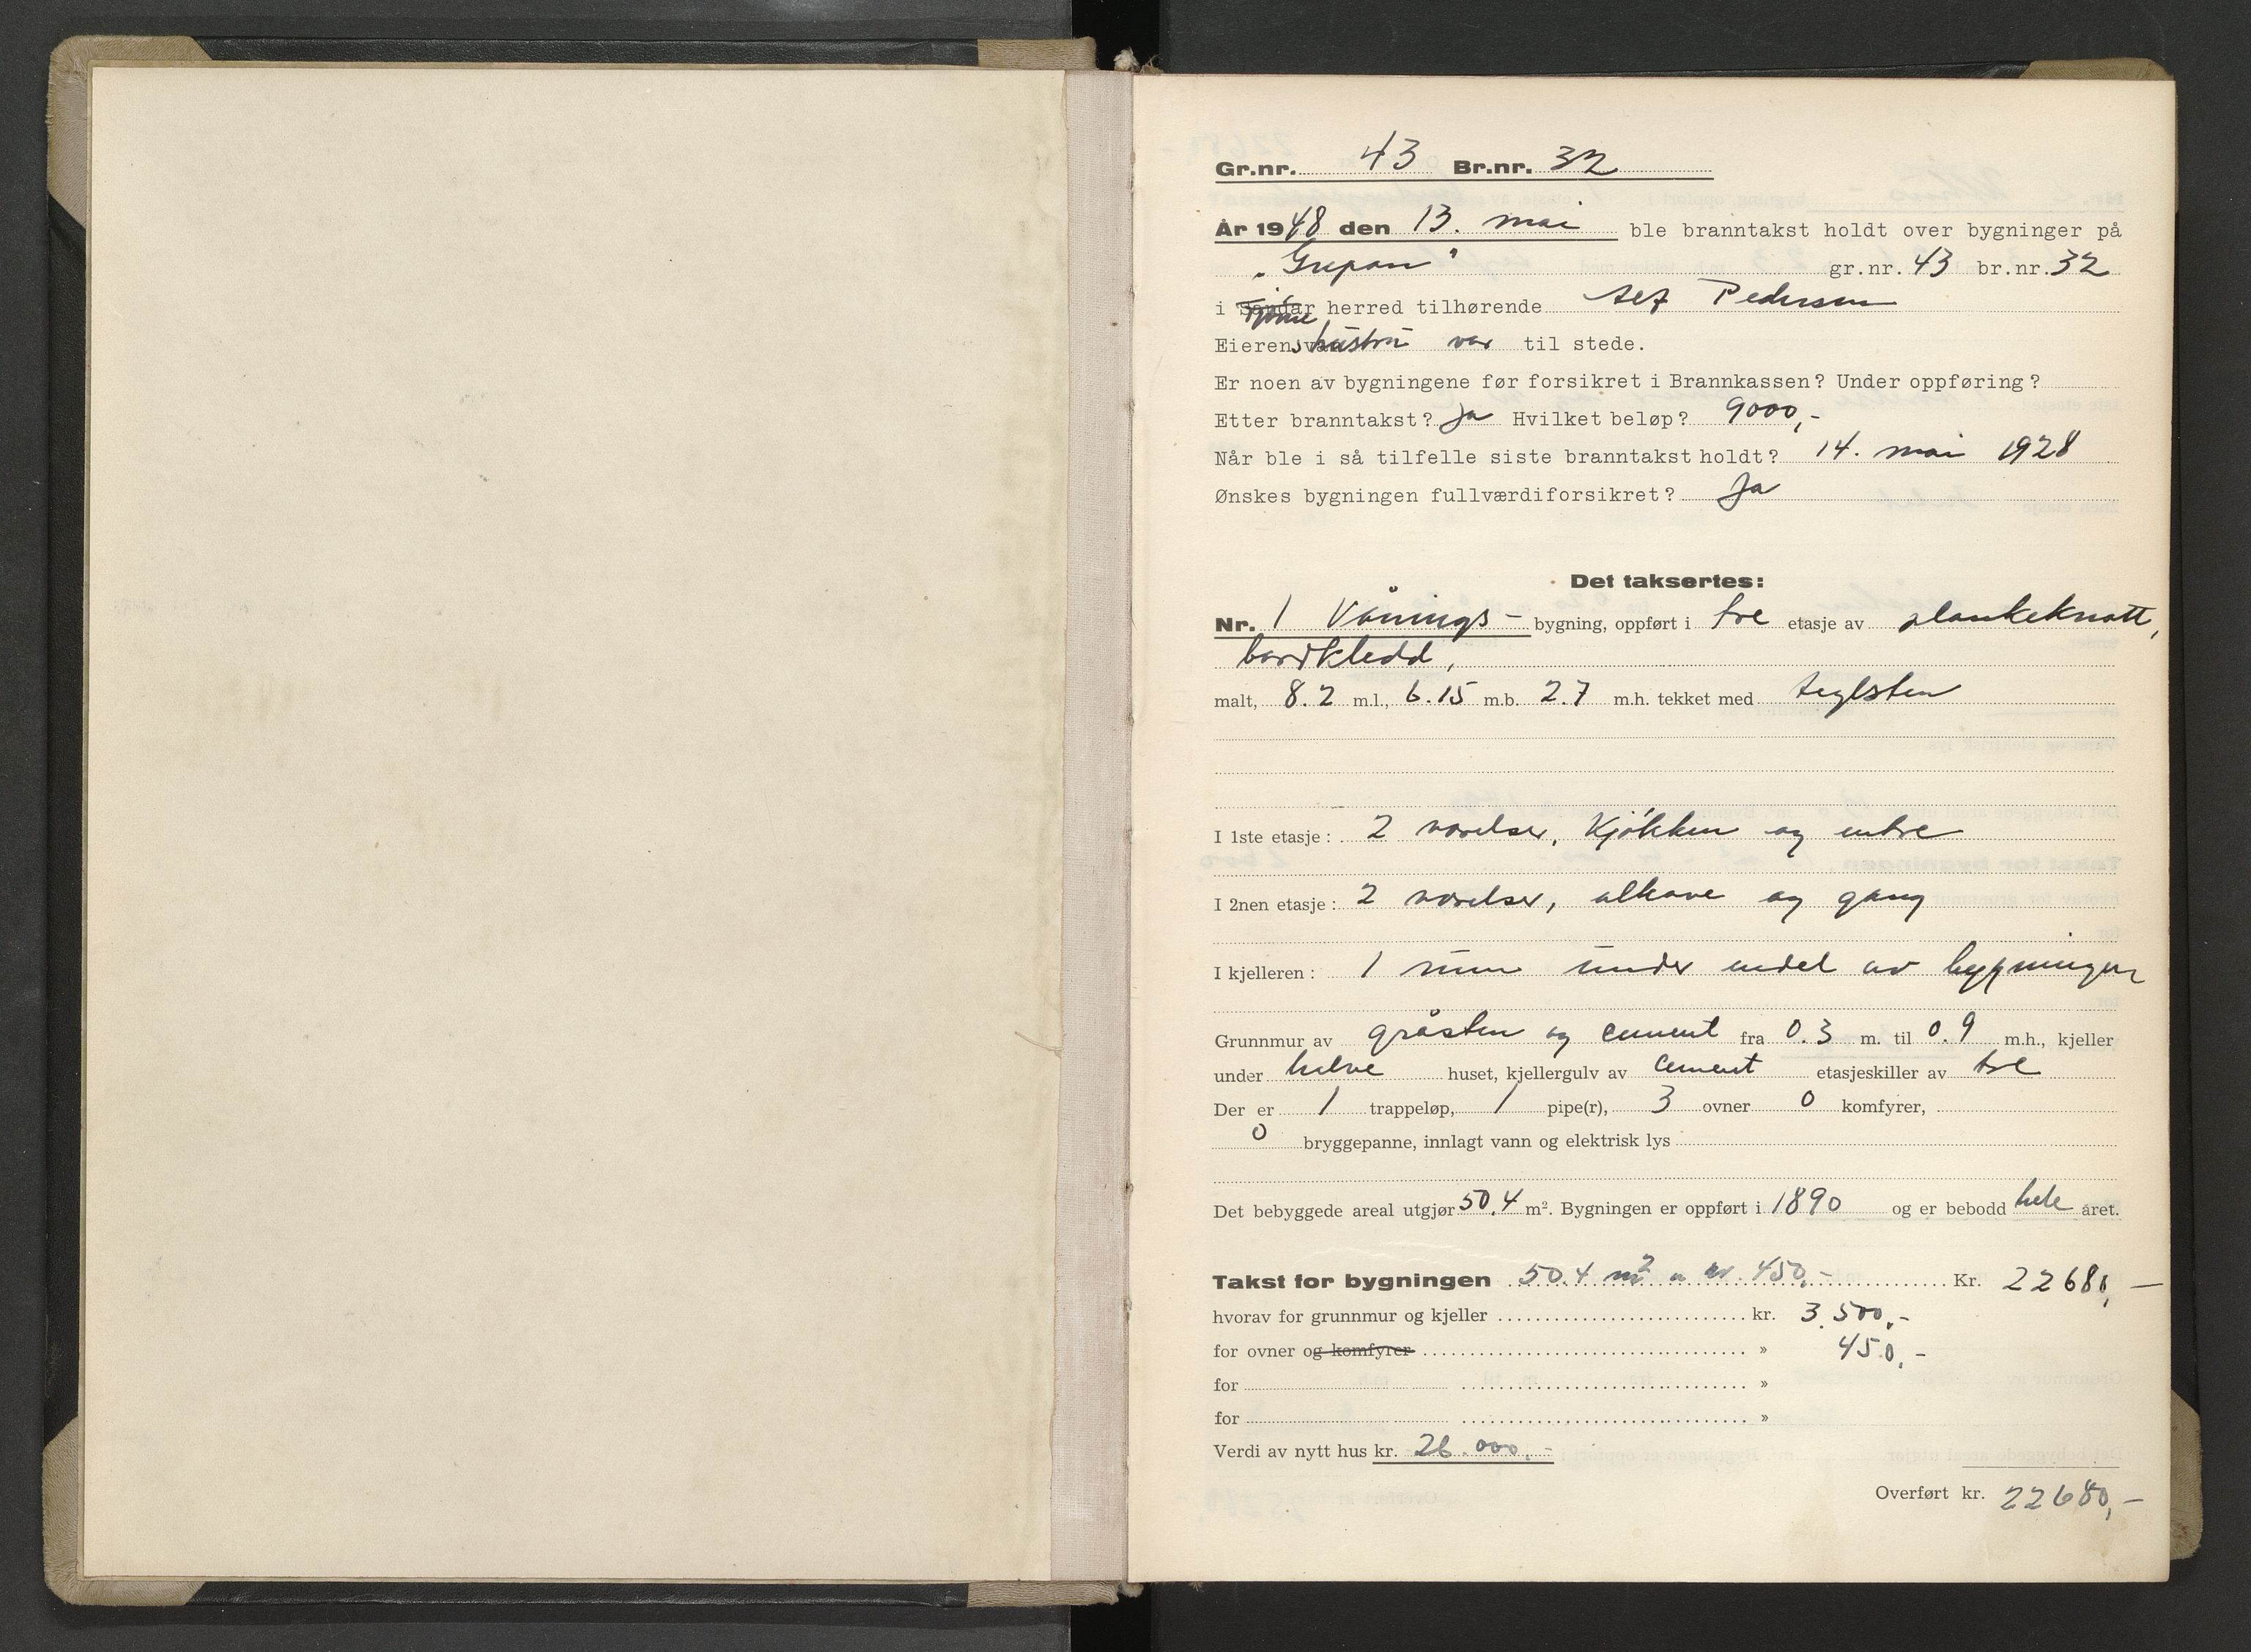 Gr.nr. 43 Br.nr. 32
År 1948 den 13. mai ble branntakst holdt over bygninger på
„Grepan" gr.nr. 43 br.nr. 32
i Sandar Tjøme herred tilhørende Pedersen
Eierens hustru var til stede.
Er noen av bygningene før forsikret i Brannkassen? Under oppføring?
Etter branntakst? Ja Hvilket beløp? 9000,-
Når ble i så tilfelle siste branntakst holdt? 14. mai 1928
Ønskes bygningen fullværdiforsikret? Ja
Det taksertes:
Nr. 1 Vånings- bygning, oppført i tre etasje av plankeknatt,
bordkledd,
malt, 8.2 m.l., 6.15 m.b. 2.7 m.h. tekket med teglsten
I 1ste etasje: 2 værelser, kjøkken og entre
I 2nen etasje: 2 værelser, alkove og gang
I kjelleren: 1 rum under endel av bygningen
Grunnmur av gråsten og cement fra 0.3 m. til 0.9 m.h., kjeller
under halve huset, kjellergulv av cement etasjeskiller av tre
Der er 1 trappeløp, 1 pipe(r), 3 ovner 0 komfyrer,
0 bryggepanne, innlagt vann og elektrisk lys
Det bebyggede areal utgjør 50.4 m². Bygningen er oppført i 1890 og er bebodd hele året.
Takst for bygningen 50.4 m² a kr. 450,- Kr. 22680,-
hvorav for grunnmur og kjeller kr. 3.500,-
for ovner og komfyrer » 450,-
for »
for »
Verdi av nytt hus kr. 26.000,-
Overført kr. 22680,-